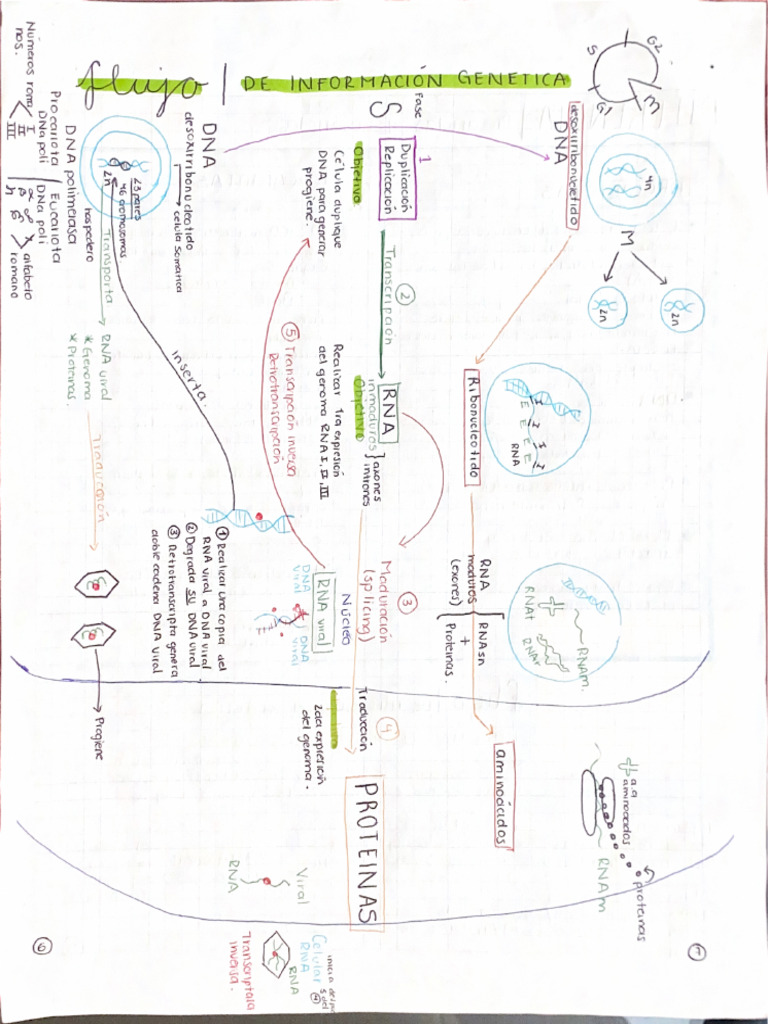 flujo DE INFORMACIÓN GENETICA
Fase
S
S
G2
M
G1
DNA
desoxirribonucleotido
celula somatica
23 pares
46 cromosomas
2n
hospedero
1
Duplicación
Replicación
Objetivo
Celula duplique
DNA para generar
progiene.
desoxirribonucleotido
DNA
4n
M
2n
2n
2
Transcripción
RNA
inmaduros
Objetivo
} axones
intrones
Realizar 1ra expresión
del genoma RNA I, II, III
Ribonucleotido
RNA
3
Maduración
(splicing)
RNA
maduros
(exones)
RNAsn
+
Proteinas.
RNAt
RNAr
RNAm.
Núcleo
4
Traducción
2da expresión
del genoma.
PROTEINAS
aminoácidos
a.a
aminoacidos
proteinas
RNAm
5 Transcripción inversa
Retrotranscripción
RNA viral
DNA
viral
DNA
viral
inserta.
① Realizar una copia del
RNA viral a DNA viral
② Degrada su DNA viral.
③ Retrotranscripta genera
doble cadena DNA viral
Transporta
RNA viral
* Genoma
* Proteinas.
Traducción
Progiene
Viral
RNA
RNA
Celular
RNA
Transcriptasa
inversa.
DNA polimerasa
Procariota
DNA poli
I
II
III
Números roma
nos.
Eucariota
DNA poli
alfabeto
romano
6
7